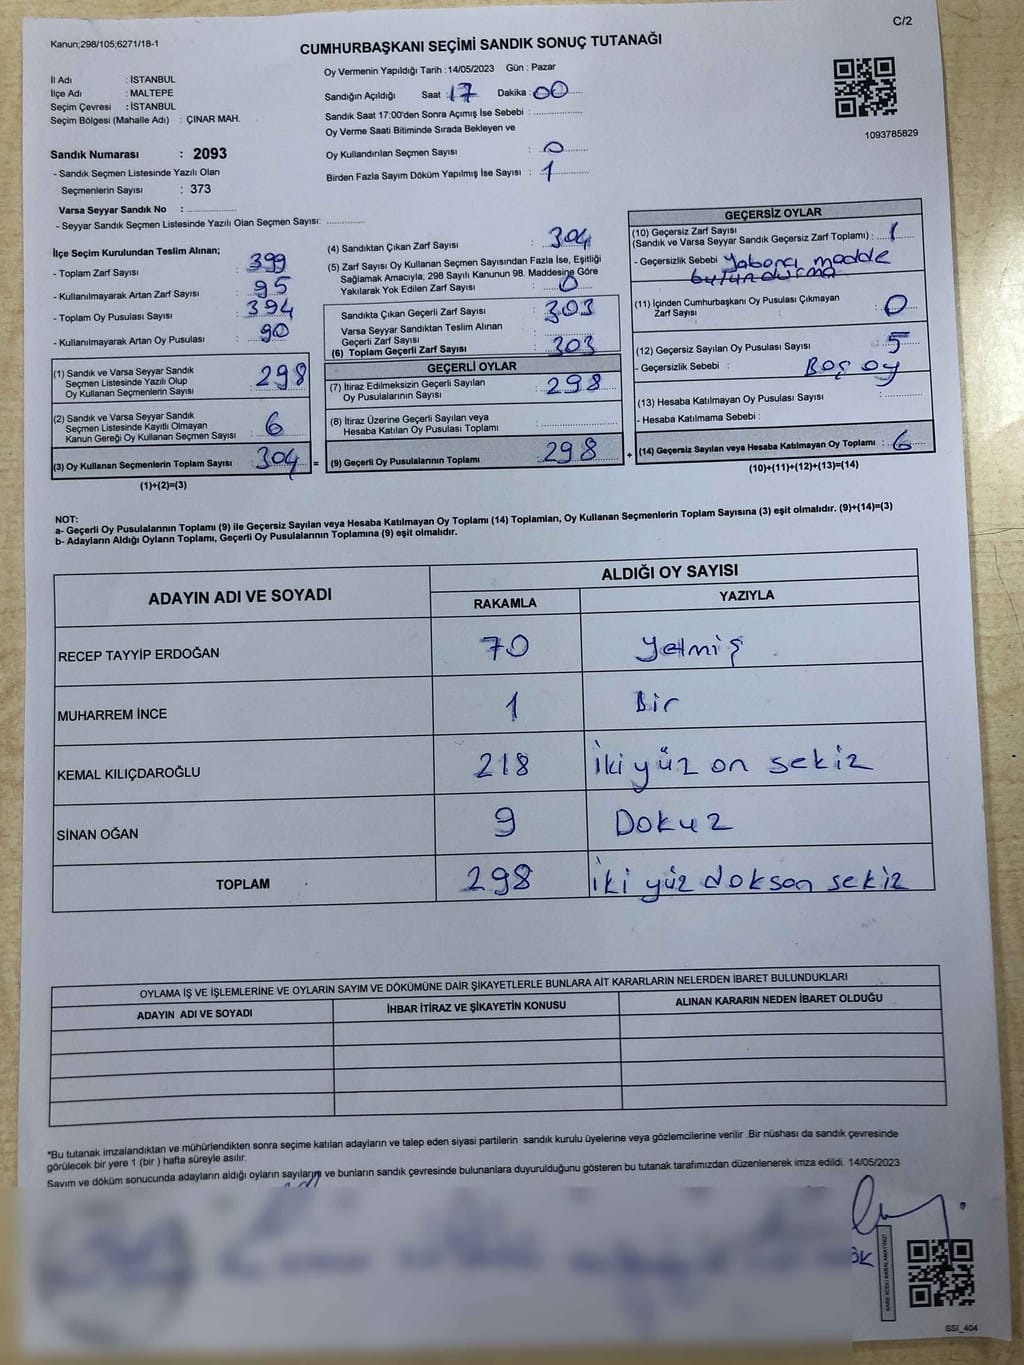 C/2
Kanun;298/105;6271/18-1
CUMHURBAŞKANI SEÇİMİ SANDIK SONUÇ TUTANAĞI
İl Adı : İSTANBUL
İlçe Adı : MALTEPE
Seçim Çevresi : İSTANBUL
Seçim Bölgesi (Mahalle Adı) : ÇINAR MAH.
Sandık Numarası : 2093
- Sandık Seçmen Listesinde Yazılı Olan
Seçmenlerin Sayısı : 373
Varsa Seyyar Sandık No :
- Seyyar Sandık Seçmen Listesinde Yazılı Olan Seçmen Sayısı:
Oy Vermenin Yapıldığı Tarih : 14/05/2023 Gün : Pazar
Sandığın Açıldığı Saat : 17 Dakika : 00
Sandık Saat 17:00'den Sonra Açımış İse Sebebi :
Oy Verme Saati Bitiminde Sırada Bekleyen ve
Oy Kullandırılan Seçmen Sayısı : 0
Birden Fazla Sayım Döküm Yapılmış İse Sayısı : 1
1093785829
İlçe Seçim Kurulundan Teslim Alınan;
- Toplam Zarf Sayısı : 399
- Kullanılmayarak Artan Zarf Sayısı : 95
- Toplam Oy Pusulası Sayısı : 394
- Kullanılmayarak Artan Oy Pusulası : 90
(1) Sandık ve Varsa Seyyar Sandık
Seçmen Listesinde Yazılı Olup
Oy Kullanan Seçmenlerin Sayısı : 298
(2) Sandık ve Varsa Seyyar Sandık
Seçmen Listesinde Kayıtlı Olmayan
Kanun Gereği Oy Kullanan Seçmen Sayısı : 6
(3) Oy Kullanan Seçmenlerin Toplam Sayısı : 304 =
(1)+(2)=(3)
(4) Sandıktan Çıkan Zarf Sayısı : 304
(5) Zarf Sayısı Oy Kullanan Seçmen Sayısından Fazla İse, Eşitliği
Sağlamak Amacıyla; 298 Sayılı Kanunun 98. Maddesine Göre
Yakılarak Yok Edilen Zarf Sayısı : 0
Sandıkta Çıkan Geçerli Zarf Sayısı : 303
Varsa Seyyar Sandıktan Teslim Alınan
Geçerli Zarf Sayısı :
(6) Toplam Geçerli Zarf Sayısı : 303
GEÇERLİ OYLAR
(7) İtiraz Edilmeksizin Geçerli Sayılan
Oy Pusulalarının Sayısı : 298
(8) İtiraz Üzerine Geçerli Sayılan veya
Hesaba Katılan Oy Pusulası Toplamı :
(9) Geçerli Oy Pusulalarının Toplamı : 298 +
GEÇERSİZ OYLAR
(10) Geçersiz Zarf Sayısı
(Sandık ve Varsa Seyyar Sandık Geçersiz Zarf Toplamı) : 1
- Geçersizlik Sebebi : Yabancı madde
bulundurma
(11) İçinden Cumhurbaşkanı Oy Pusulası Çıkmayan
Zarf Sayısı : 0
(12) Geçersiz Sayılan Oy Pusulası Sayısı : 5
- Geçersizlik Sebebi : Boş oy
(13) Hesaba Katılmayan Oy Pusulası Sayısı :
- Hesaba Katılmama Sebebi :
(14) Geçersiz Sayılan veya Hesaba Katılmayan Oy Toplamı : 6
(10)+(11)+(12)+(13)=(14)
NOT:
a- Geçerli Oy Pusulalarının Toplamı (9) ile Geçersiz Sayılan veya Hesaba Katılmayan Oy Toplamı (14) Toplamları, Oy Kullanan Seçmenlerin Toplam Sayısına (3) eşit olmalıdır. (9)+(14)=(3)
b- Adayların Aldığı Oyların Toplamı, Geçerli Oy Pusulalarının Toplamına (9) eşit olmalıdır.
ADAYIN ADI VE SOYADI ALDIĞI OY SAYISI
RAKAMLA YAZIYLA
RECEP TAYYİP ERDOĞAN 70 Yetmiş
MUHARREM İNCE 1 Bir
KEMAL KILIÇDAROĞLU 218 İki yüz on sekiz
SİNAN OĞAN 9 Dokuz
TOPLAM 298 İki yüz doksan sekiz
OYLAMA İŞ VE İŞLEMLERİNE VE OYLARIN SAYIM VE DÖKÜMÜNE DAİR ŞİKAYETLERLE BUNLARA AİT KARARLARIN NELERDEN İBARET BULUNDUKLARI
ADAYIN ADI VE SOYADI İHBAR İTİRAZ VE ŞİKAYETİN KONUSU ALINAN KARARIN NEDEN İBARET OLDUĞU
*Bu tutanak imzalandıktan ve mühürlendikten sonra seçime katılan adayların ve talep eden siyasi partilerin sandık kurulu üyelerine veya gözlemcilerine verilir .Bir nüshası da sandık çevresinde
görülecek bir yere 1 (bir ) hafta süreyle asılır.
Sayım ve döküm sonucunda adayların aldığı oyların sayılarını ve bunların sandık çevresinde bulunanlara duyurulduğunu gösteren bu tutanak tarafımızdan düzenlenerek imza edildi. 14/05/2023
ÖK
KARE KODU KARALAMAYINIZ!
SSI_404